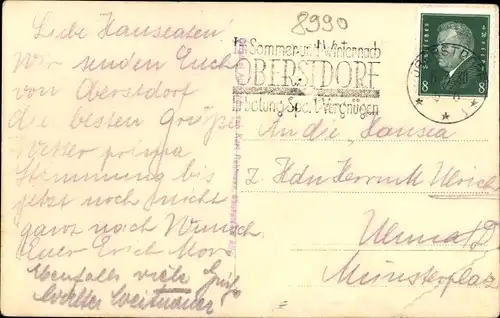 8990
Liebe Hanseaten!
Wir senden Euch
von Oberstdorf
die besten Grüße
Wetter prima
Stimmung bis
jetzt noch nicht
ganz nach Wunsch
Euer Erich
Ebenfalls viele
Walter
Im Sommer und Winter nach
OBERSTDORF
Erholung Sport Vergnügen
DEUTSCHES REICH
8 8
OBERSTDORF
An die Hansea
z. Hdn Herrn M Ulrich
Ulm a/D
Münsterplatz